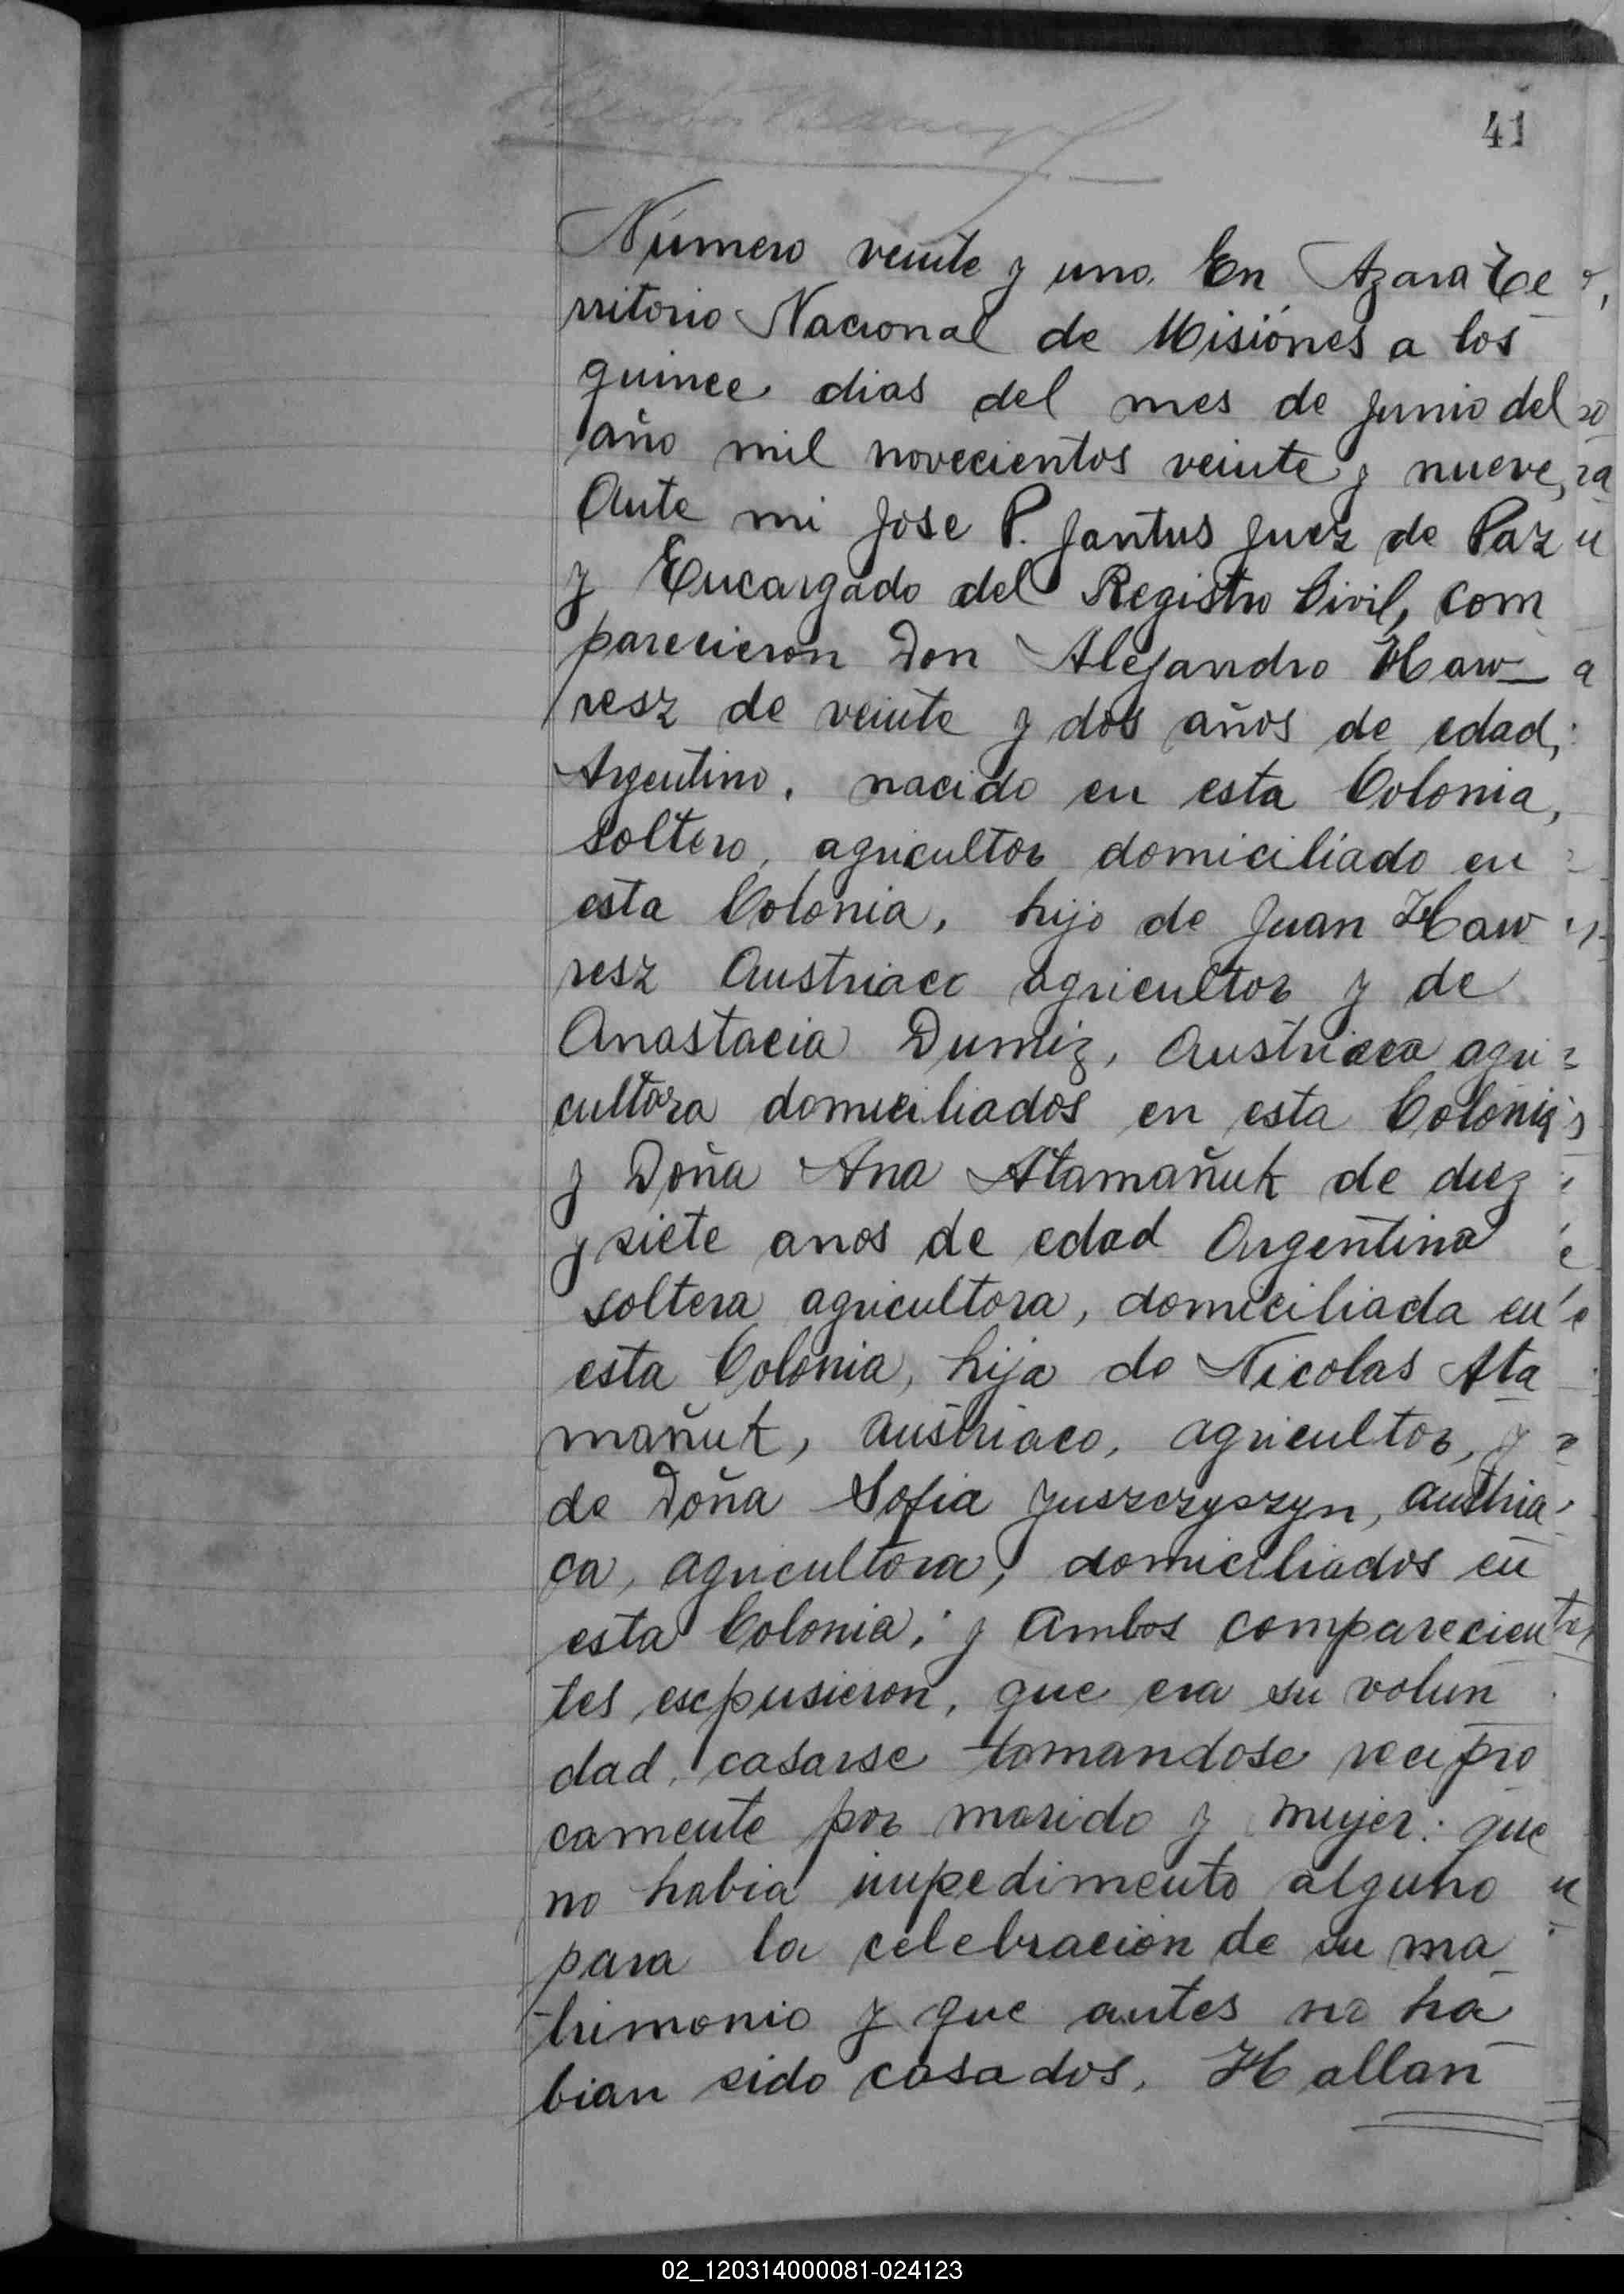 41
Número veinte y uno. En Azara Te
rritorio Nacional de Misiónes a los
quince dias del mes de Junio del
año mil novecientos veinte y nueve,
Ante mi Jose P. Jantus Juez de Paz
y Encargado del Registro Civil, com
parecieron Don Alejandro Haw_
resz de veinte y dos años de edad,
Argentino, nacido en esta Colonia,
soltero, agricultor domiciliado en
esta Colonia, hijo de Juan Haw
resz Austriaco agricultor y de
Anastacia Dumiz, Austriaca agri
cultora domiciliados en esta Colonia
y Doña Ana Atamañuk de diez
y siete anos de edad Argentina
soltera agricultora, domiciliada en
esta Colonia, hija de Nicolas Ata
mañuk, austriaco, agricultor, y
de Doña Sofia Juszczyszyn, austria
ca, agricultora, domiciliados en
esta Colonia; y ambos comparecien
tes escpusieron, que era su volun
dad, casarse tomandose recipro
camente por marido y mujer: que
no habia impedimento alguno
para la celebracion de su ma
trimonio y que antes no ha
bian sido casados. Hallan
02_120314000081-024123